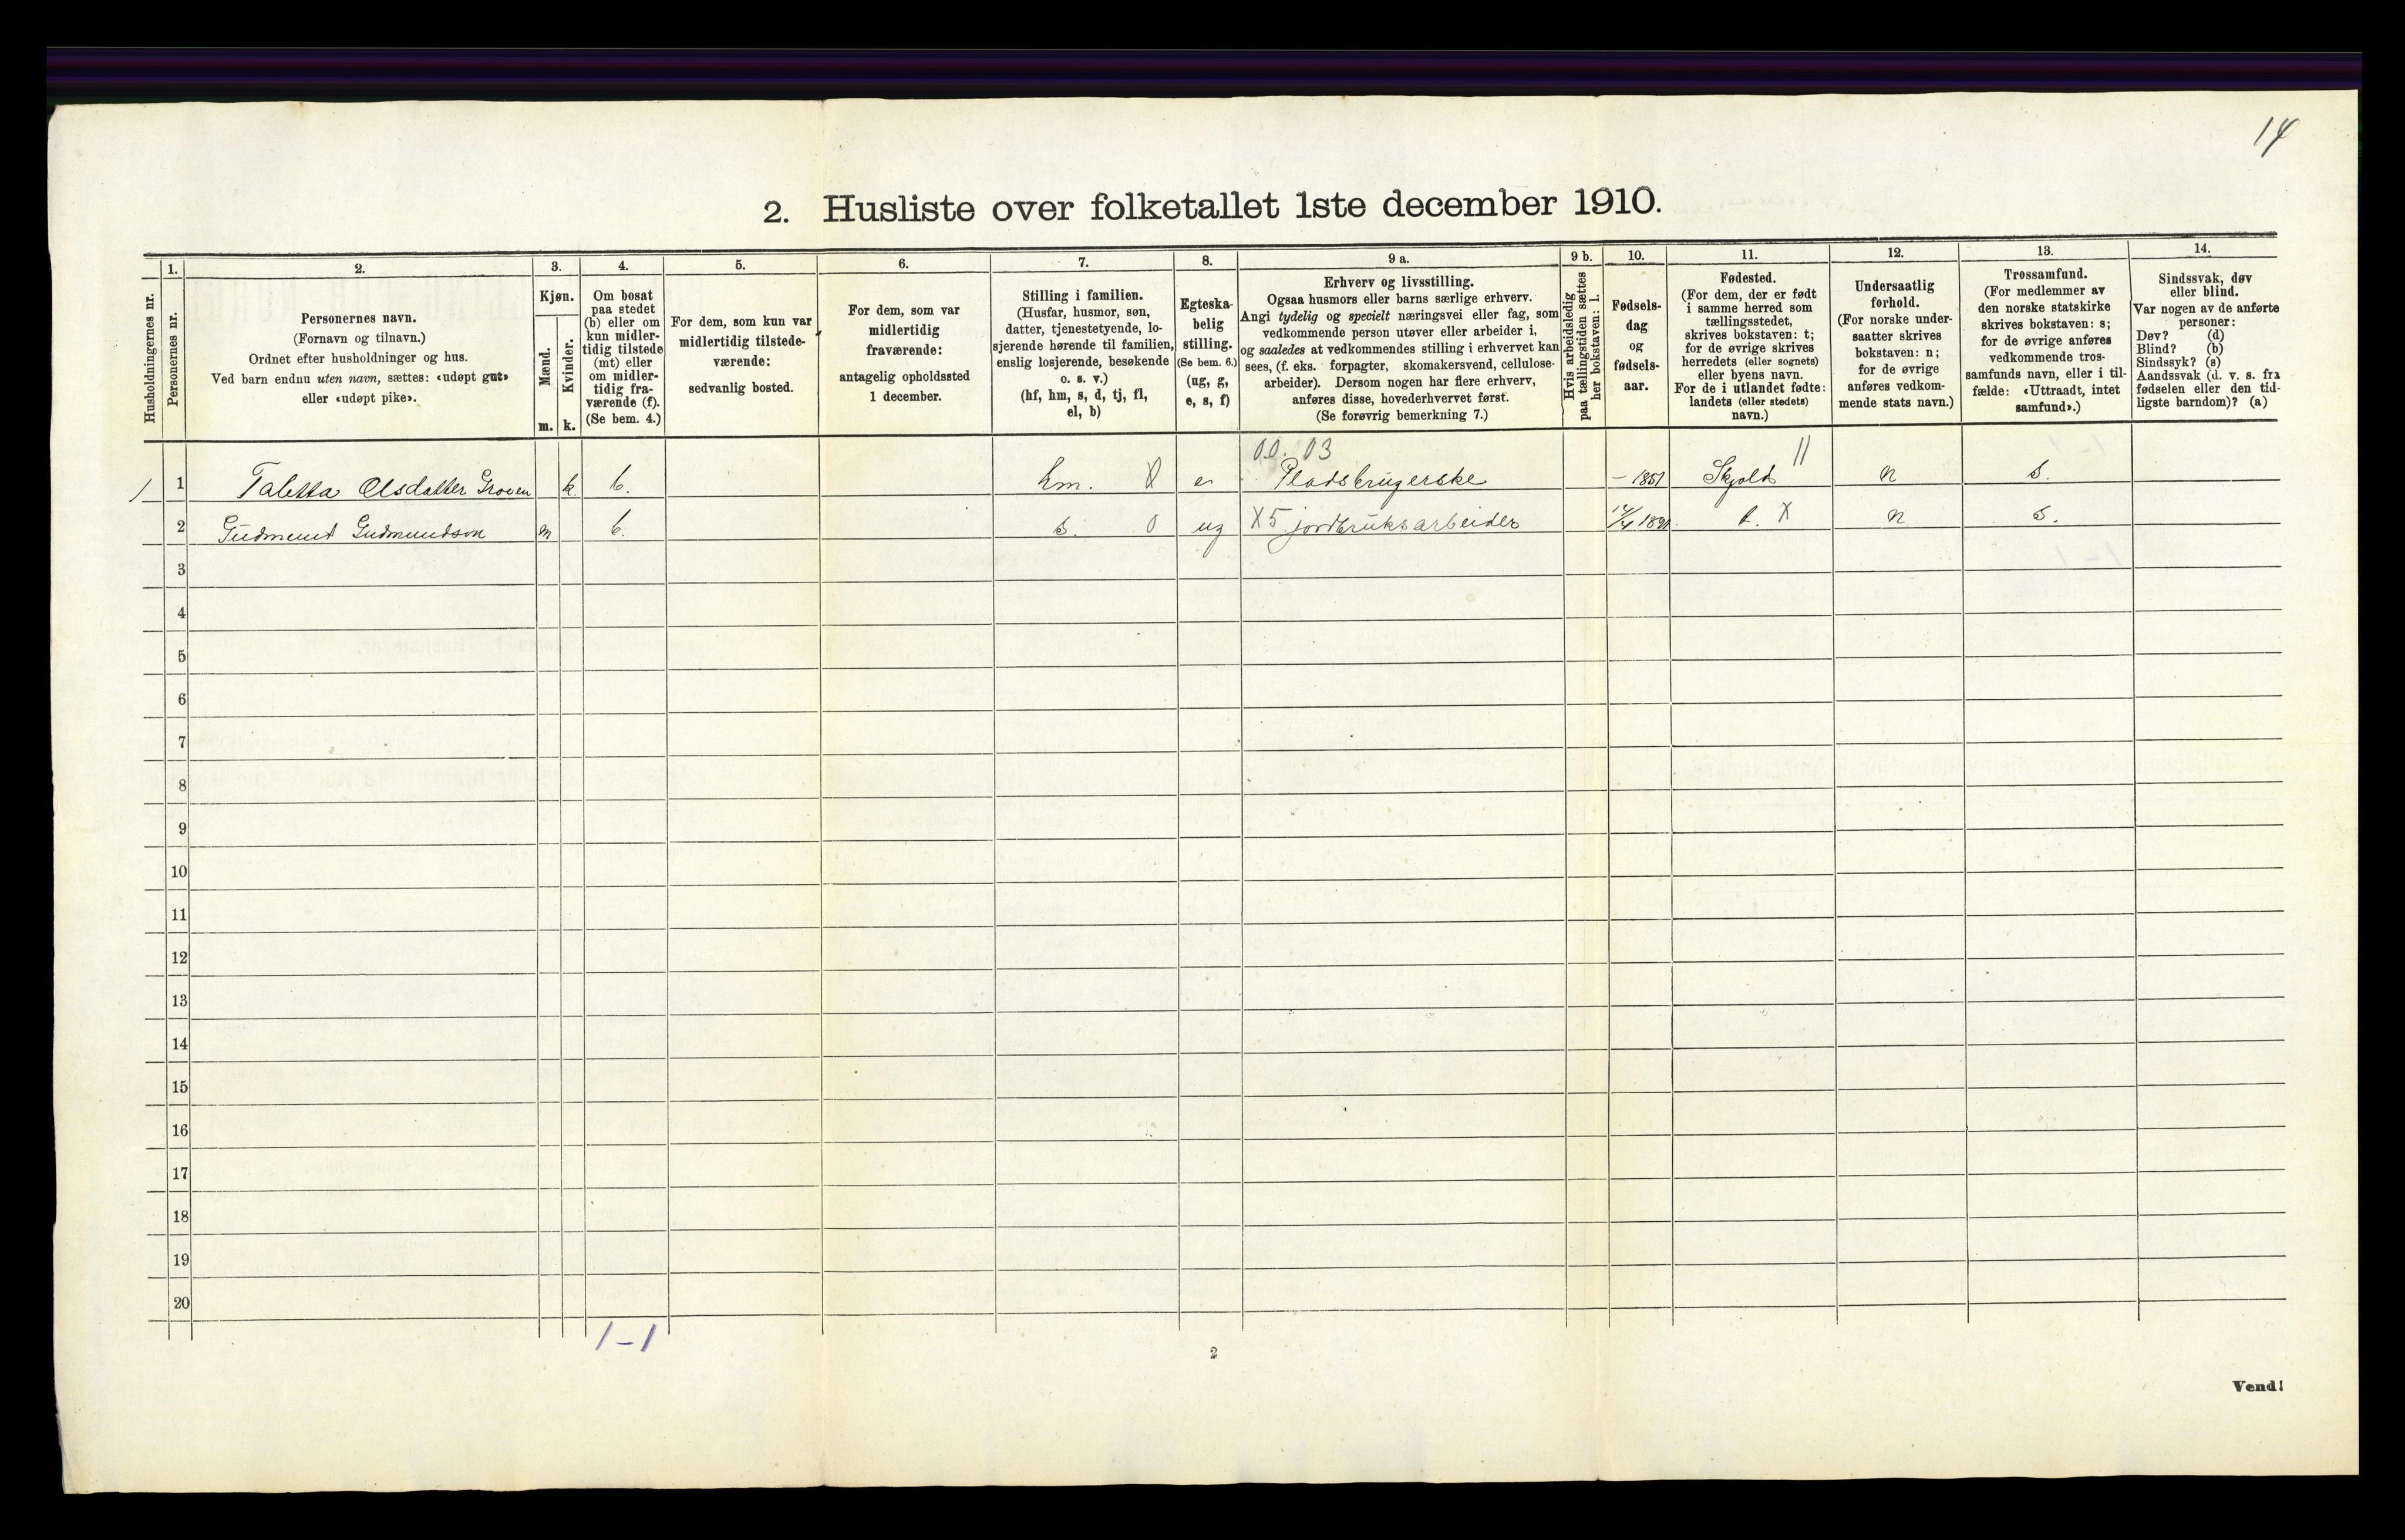 14
2. Husliste over folketallet 1ste december 1910.
Husholdningernes nr.
1.
Personernes nr.
2.
Personernes navn.
(Fornavn og tilnavn.)
Ordnet efter husholdninger og hus.
Ved barn endnu uten navn, sættes: «udøpt gut»
eller «udøpt pike».
3.
Kjøn.
Mænd.
Kvinder.
m. k.
4.
Om bosat
paa stedet
(b) eller om
kun midler-
tidig tilstede
(mt) eller
om midler-
tidig fra-
værende (f).
(Se bem. 4.)
5.
For dem, som kun var
midlertidig tilstede-
værende:
sedvanlig bosted.
6.
For dem, som var
midlertidig
fraværende:
antagelig opholdssted
1 december.
7.
Stilling i familien.
(Husfar, husmor, søn,
datter, tjenestetyende, lo-
sjerende hørende til familien,
enslig losjerende, besøkende
o. s. v.)
(hf, hm, s, d, tj, fl,
el, b)
8.
Egteska-
belig
stilling.
(Se bem. 6.)
(ug, g,
e, s, f)
9 a.
Erhverv og livsstilling.
Ogsaa husmors eller barns særlige erhverv.
Angi tydelig og specielt næringsvei eller fag, som
vedkommende person utøver eller arbeider i,
og saaledes at vedkommendes stilling i erhvervet kan
sees, (f. eks. forpagter, skomakersvend, cellulose-
arbeider). Dersom nogen har flere erhverv,
anføres disse, hovederhvervet først.
(Se forøvrig bemerkning 7.)
9 b.
Hvis arbeidsledig
paa tællingstiden sættes
her bokstaven: l.
10.
Fødsels-
dag
og
fødsels-
aar.
11.
Fødested.
(For dem, der er født
i samme herred som
tællingsstedet,
skrives bokstaven: t;
for de øvrige skrives
herredets (eller sognets)
eller byens navn.
For de i utlandet fødte:
landets (eller stedets)
navn.)
12.
Undersaatlig
forhold.
(For norske under-
saatter skrives
bokstaven: n;
for de øvrige
anføres vedkom-
mende stats navn.)
13.
Trossamfund.
(For medlemmer av
den norske statskirke
skrives bokstaven: s;
for de øvrige anføres
vedkommende tros-
samfunds navn, eller i til-
fælde: «Uttraadt, intet
samfund».)
14.
Sindssvak, døv
eller blind.
Var nogen av de anførte
personer:
Døv? (d)
Blind? (b)
Sindssyk? (s)
Aandssvak (d. v. s. fra
fødselen eller den tid-
ligste barndom)? (a)
00. 03
1 1 Taletta Olsdatter Groven k. b. hm. X e Pladsbrugerske - 1851 Skjold 11 n s.
2 Gudmund Gudmundson m b. s. 0 ug X5 jordbruksarbeider t. X n s.
3
4
5
6
7
8
9
10
11
12
13
14
15
16
17
18
19
20
1-1
2
Vend!